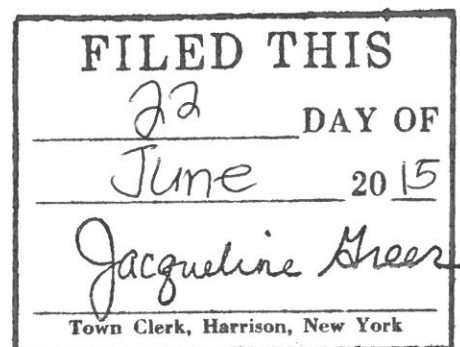 FILED THIS
22 DAY OF
June 20 15
Jacqueline Greer
Town Clerk, Harrison, New York